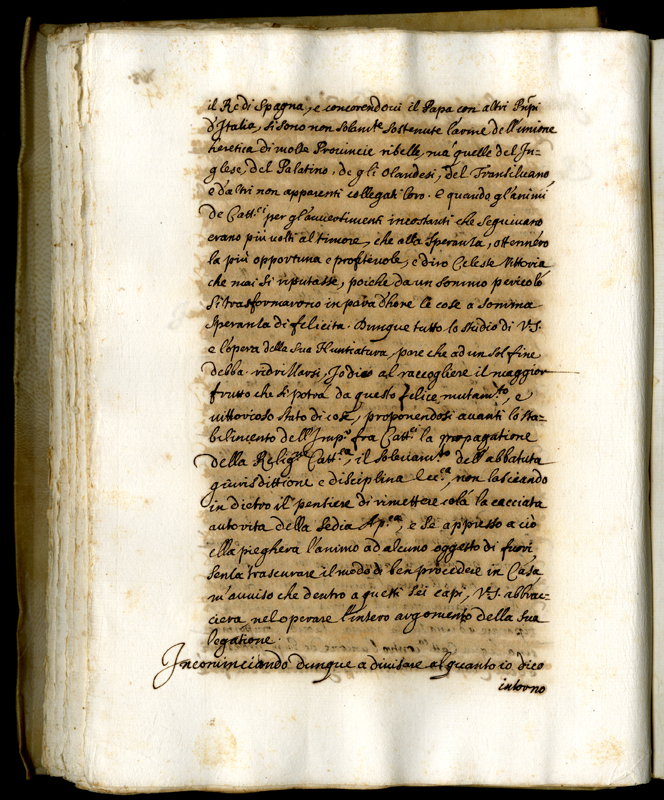 il Re di Spagna, e concorendoui il Papa con altri Prpi
d'Italia, si sono non solamte sostenute l'arme dell'unione
heretica di molte Prouincie ribelle, mà quelle del In-
glese, del Palatino, de gli Olandesi, del Transiluano
e d'altri non apparenti collegati loro. e quando gl'animi
de Catt.ci per gl'auuertimenti incostanti che seguiuano
erano più uolti al timore, che alla speranza, ottennero
la più opportuna e profiteuole, e dirò Celeste Vittoria
che mai si riputasse, poiche da un sommo pericolo
si trasformarono in paradhore le cose a somma
speranza di felicita. Dunque tutto lo studio di V.S.
e l'opera della sua Nuntiatura, pare che ad un sol fine
debba ridrillarsi, Io dico al raccogliere il maggior
frutto che si potra da questo felice mutam.to, e
uittorioso stato di cose, proponendosi auanti lo sta-
bilimento dell'Imp.o fra Catt.ci la propagatione
della Relig.e Catt.ca, il solleuam.to dell'abbattuta
giurisdittione e disciplina Ecc.ca, non lasciando
in dietro il pensiere di rimettere colà la cacciata
autorita della Sedia Ap.ca, e se appresso a ciò
ella piegherà l'animo ad alcuno oggetto di fuori,
senza trascurare il modo di ben procedere in Casa,
m'auuiso che dentro a questi sei capi, V.S. abbrac-
ciera nel operare l'intero argomento della sua
legatione.
Incominciando dunque a diuisare alquanto io dico
intorno